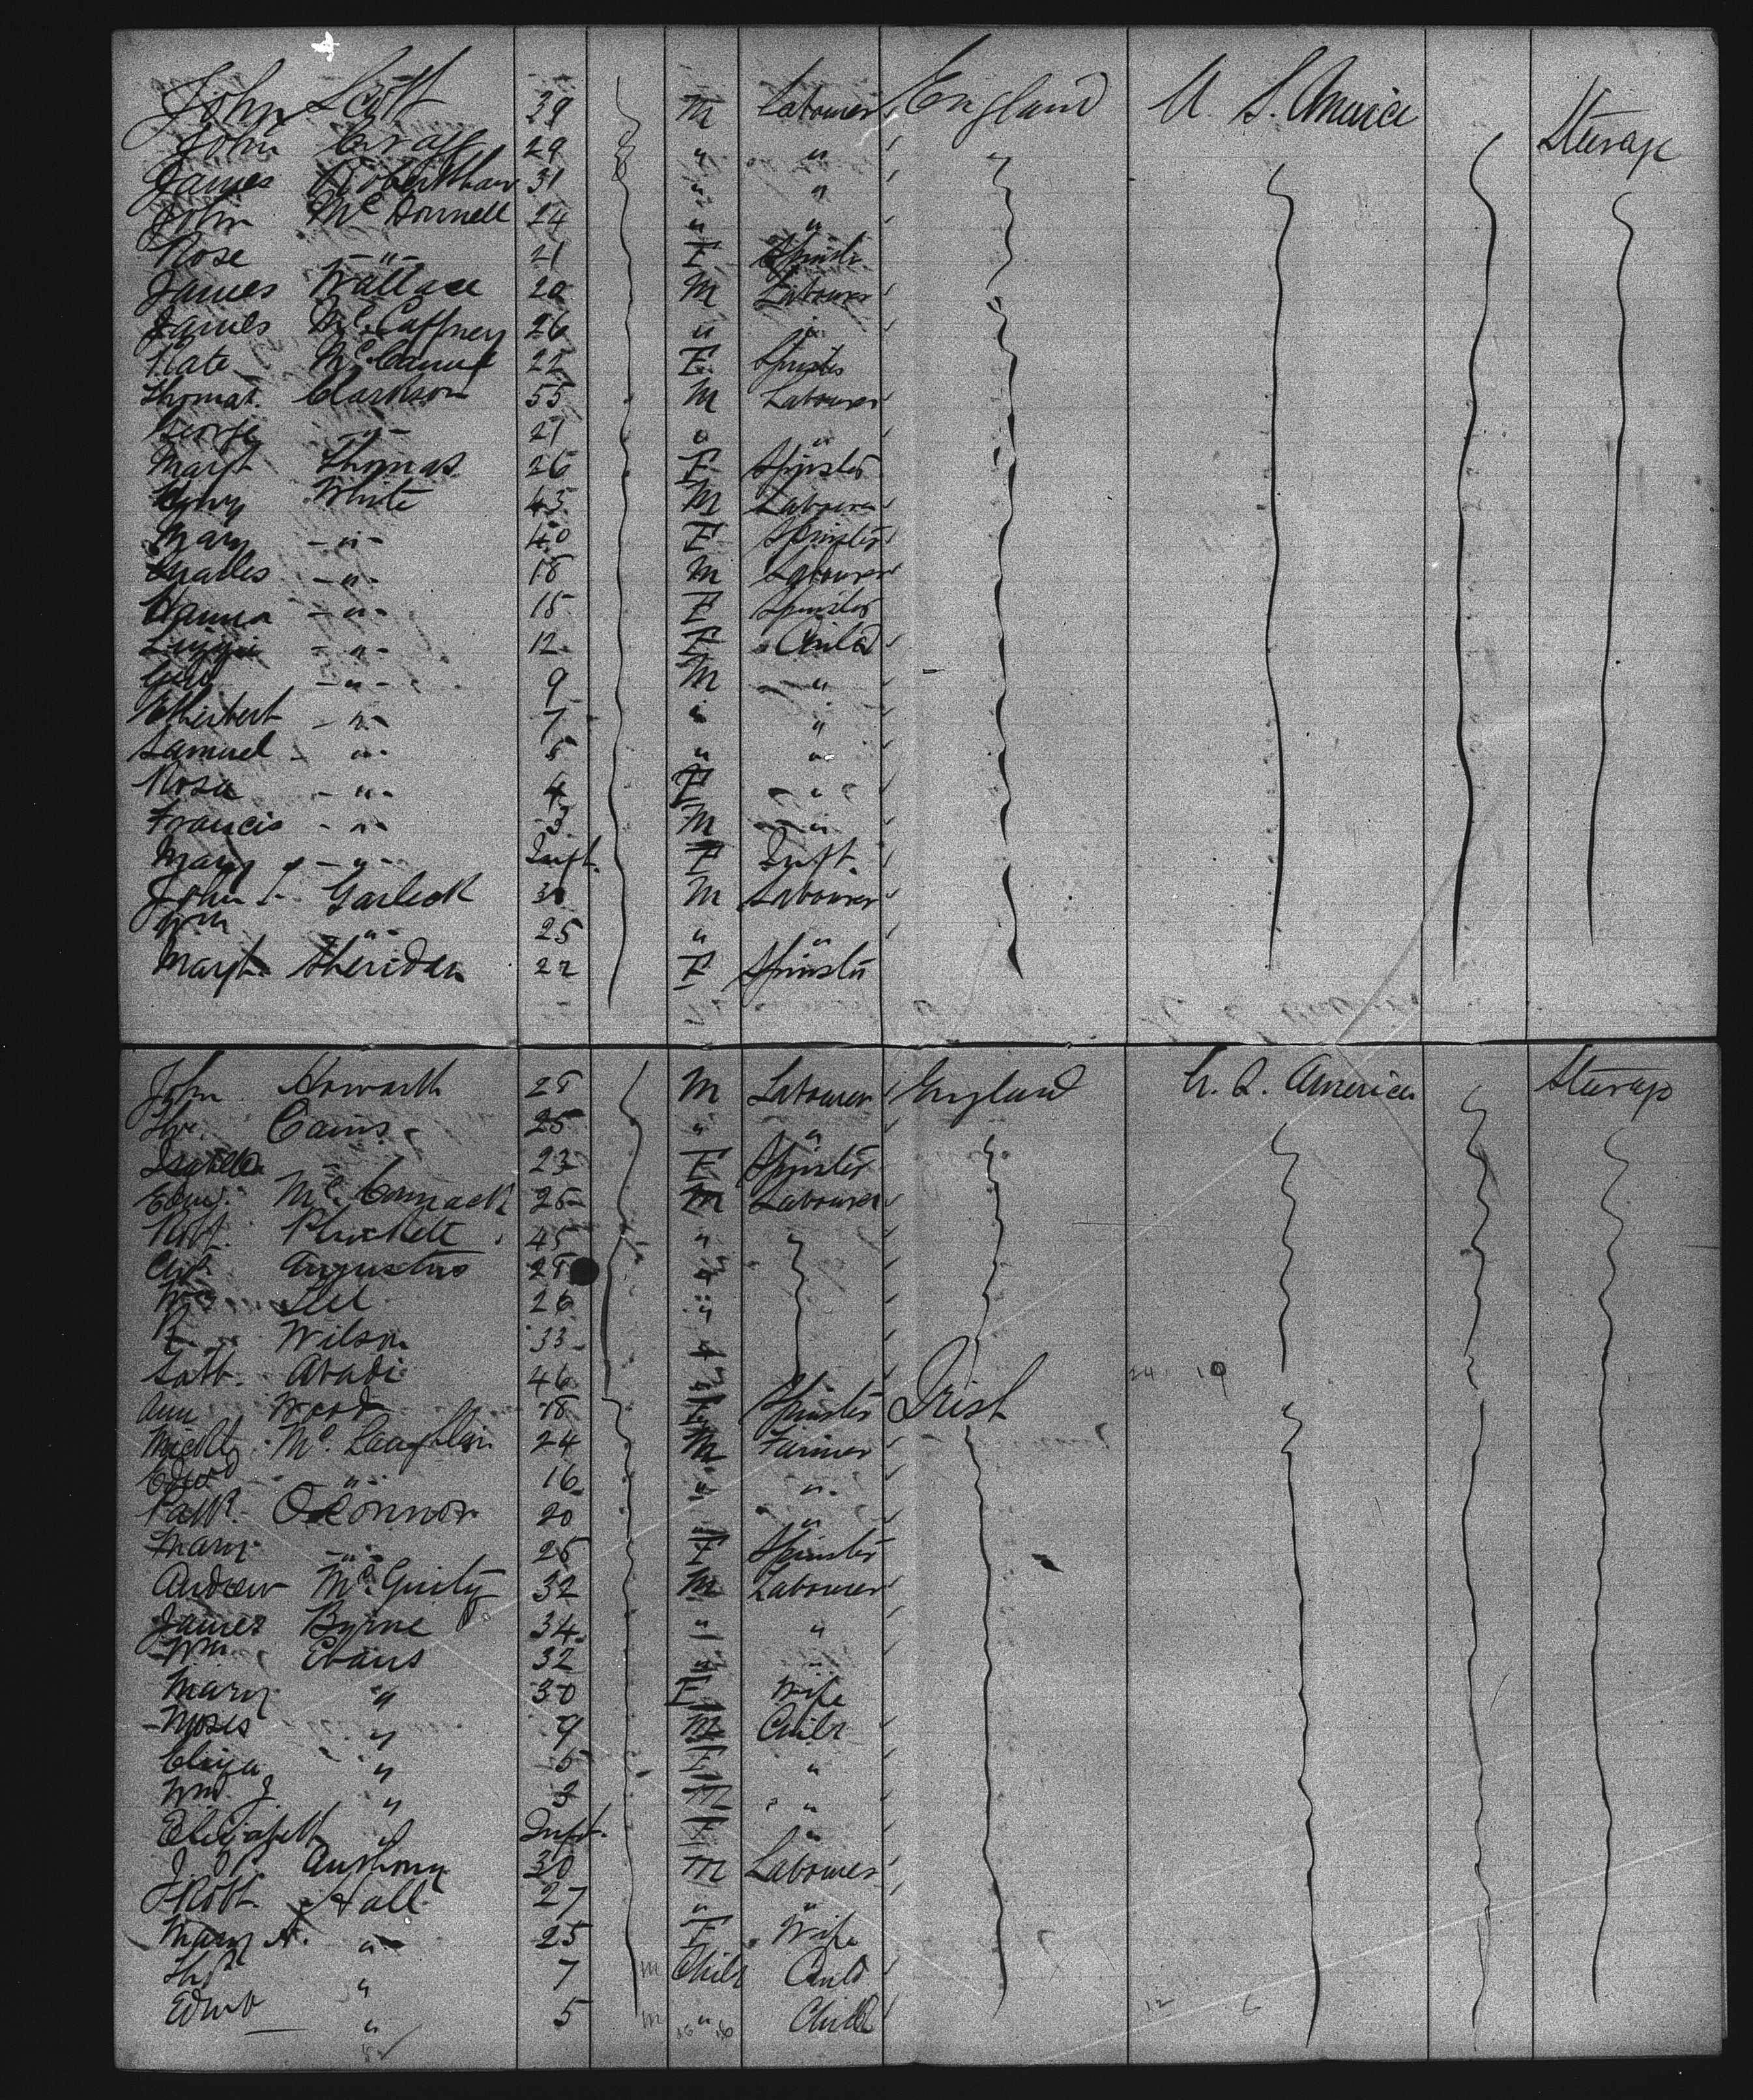 John Scott 39 M Labourer England U. S. America Steerage
John Gray 29 " "
James Robertshaw 31 " "
John McDonnell 24 " "
Rose -"- 21 F Spinster
James Wallace 20 M Labourer
James McCaffney 26 " "
Kate 22 F Spinster
Thomas Clarkson 55 M Labourer
George -"- 21 " "
Margt Thomas 26 F Spinster
Henry White 45 M Labourer
Mary -"- 40 F Spinster
Charles -"- 18 M Labourer
Hanna -"- 15 F Spinster
Lizzie -"- 12 F Child
-"- 9 M "
Ethelbert -"- 7 " "
Samuel -"- 5 " "
Rosa -"- 4 F "
Francis -"- 3 M "
Mary -"- Inft. F Inft.
John Garlick 30 M Labourer
Wm -"- 25 " "
Margt. Sheridan 22 F Spinster
John Howarth 28 M Labourer England U. S. America Steerage
Thos. Cairns 25 " "
Isabella " 23 F Spinster
Edwd. McCormack 25 M Labourer
Robt. Plunkett 45 "
Augustus 28 "
Wm Lee 26 "
Wilson 33 "
Abadi 46 "
Ann Wood 18 F Spinster Irish
Michl McLaughlin 24 M Farmer
Edwd " 16 " "
Patk. O'Connor 20 " "
Mary -"- 26 F Spinster
Andrew McGinty 32 M Labourer
James Byrne 34 " "
Wm Evans 32 " "
Mary " 30 F Wife
Moses " 9 M Child
Eliza " 5 F "
Wm. J " 3 M "
Elizabeth " Inft. F "
Anthony 30 M Labourer
Robt. Hall 27 " "
Mary A. " 25 F Wife
Thos " 7 m Child Child
Edwd " 5 m " Child